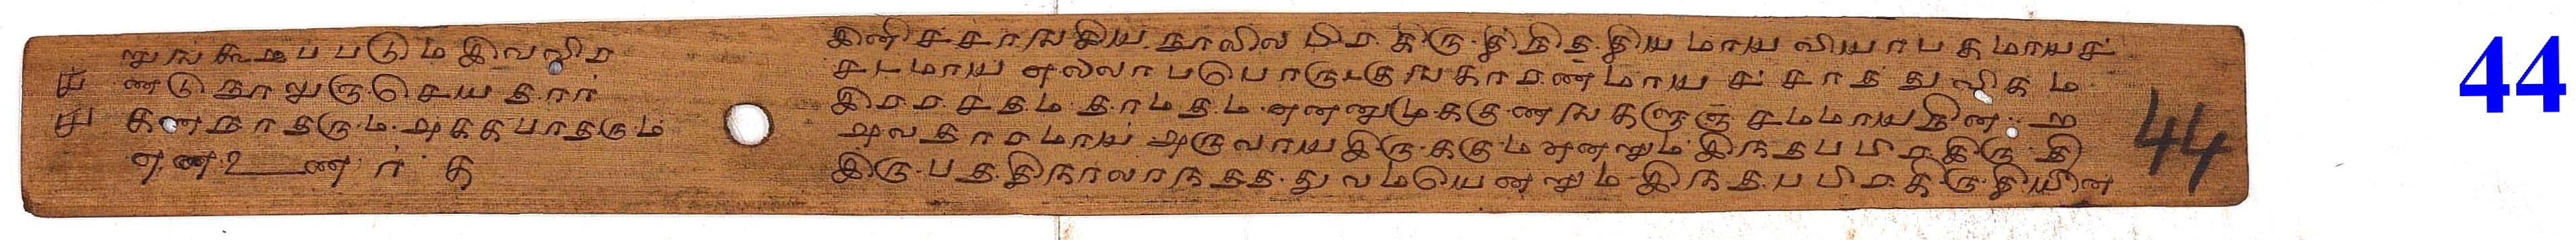 னுங கூறப படும இவவிர
ண்டு நாலுஞ செய தார
கணநாதரும அககபாதரும
எண உணர க
இனி ச சாஙகிய நாலில பிர கிரு தி நித தியமாய வியாபகமாய ச
சடமாய எலலா ப பொருடகுங காரணமாய ச சாத துவிகம
இராசதம தாமதம எனனுமு ககுணஙகளுஞ சமமாய நின ற
அவதாரமாய அருவாய இருககும எனறும இநதப பிரகிருதி
இருபத திநாலாநதத துவமயெனறும இநத ப பிரகிருதியின
44
44